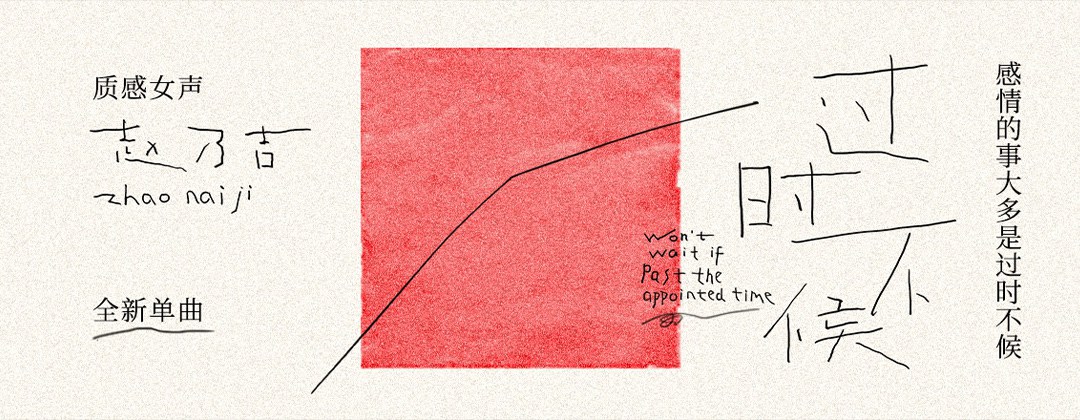 质感女声
赵乃吉
zhao nai ji
全新单曲
won't
wait if
Past the
appointed time
过
时
不
候
感情的事大多是过时不候